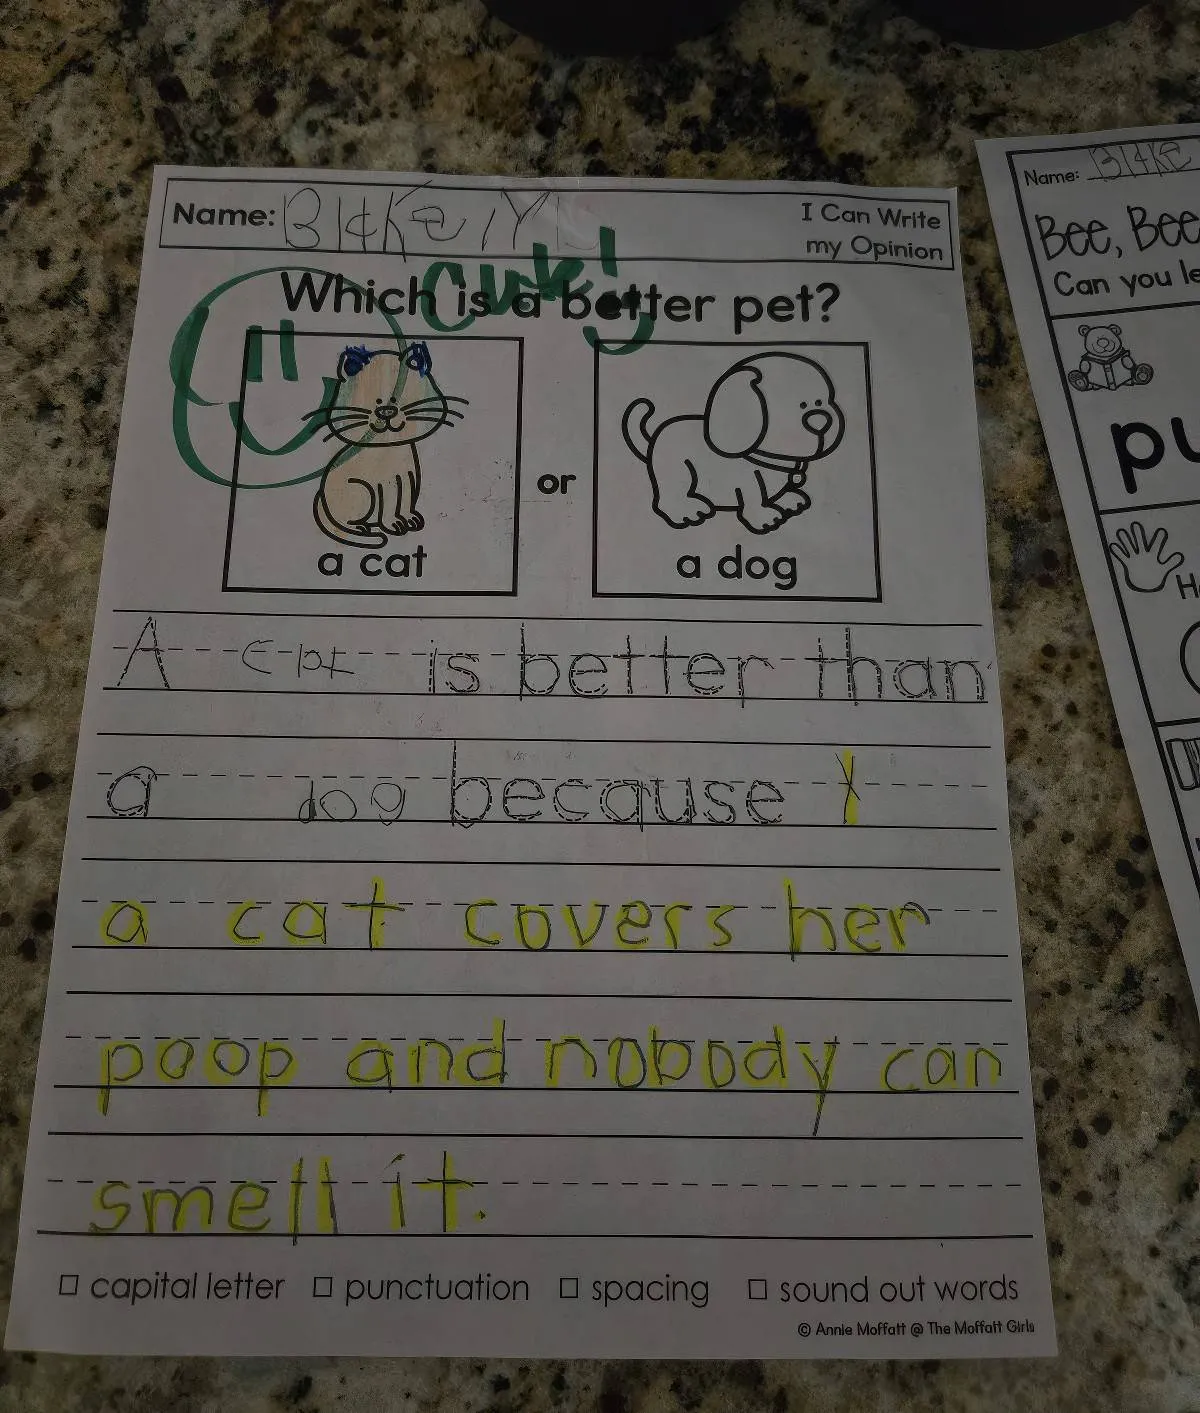 Name: Blake
I Can Write
my Opinion
cute!
Which is a better pet?
a cat
or
a dog
A cat is better than
a dog because I
a cat covers her
poop and nobody can
smell it.
capital letter punctuation spacing sound out words
© Annie Moffatt @ The Moffatt Girls
Name: Blake
Bee, Bee
Can you le
pu
H